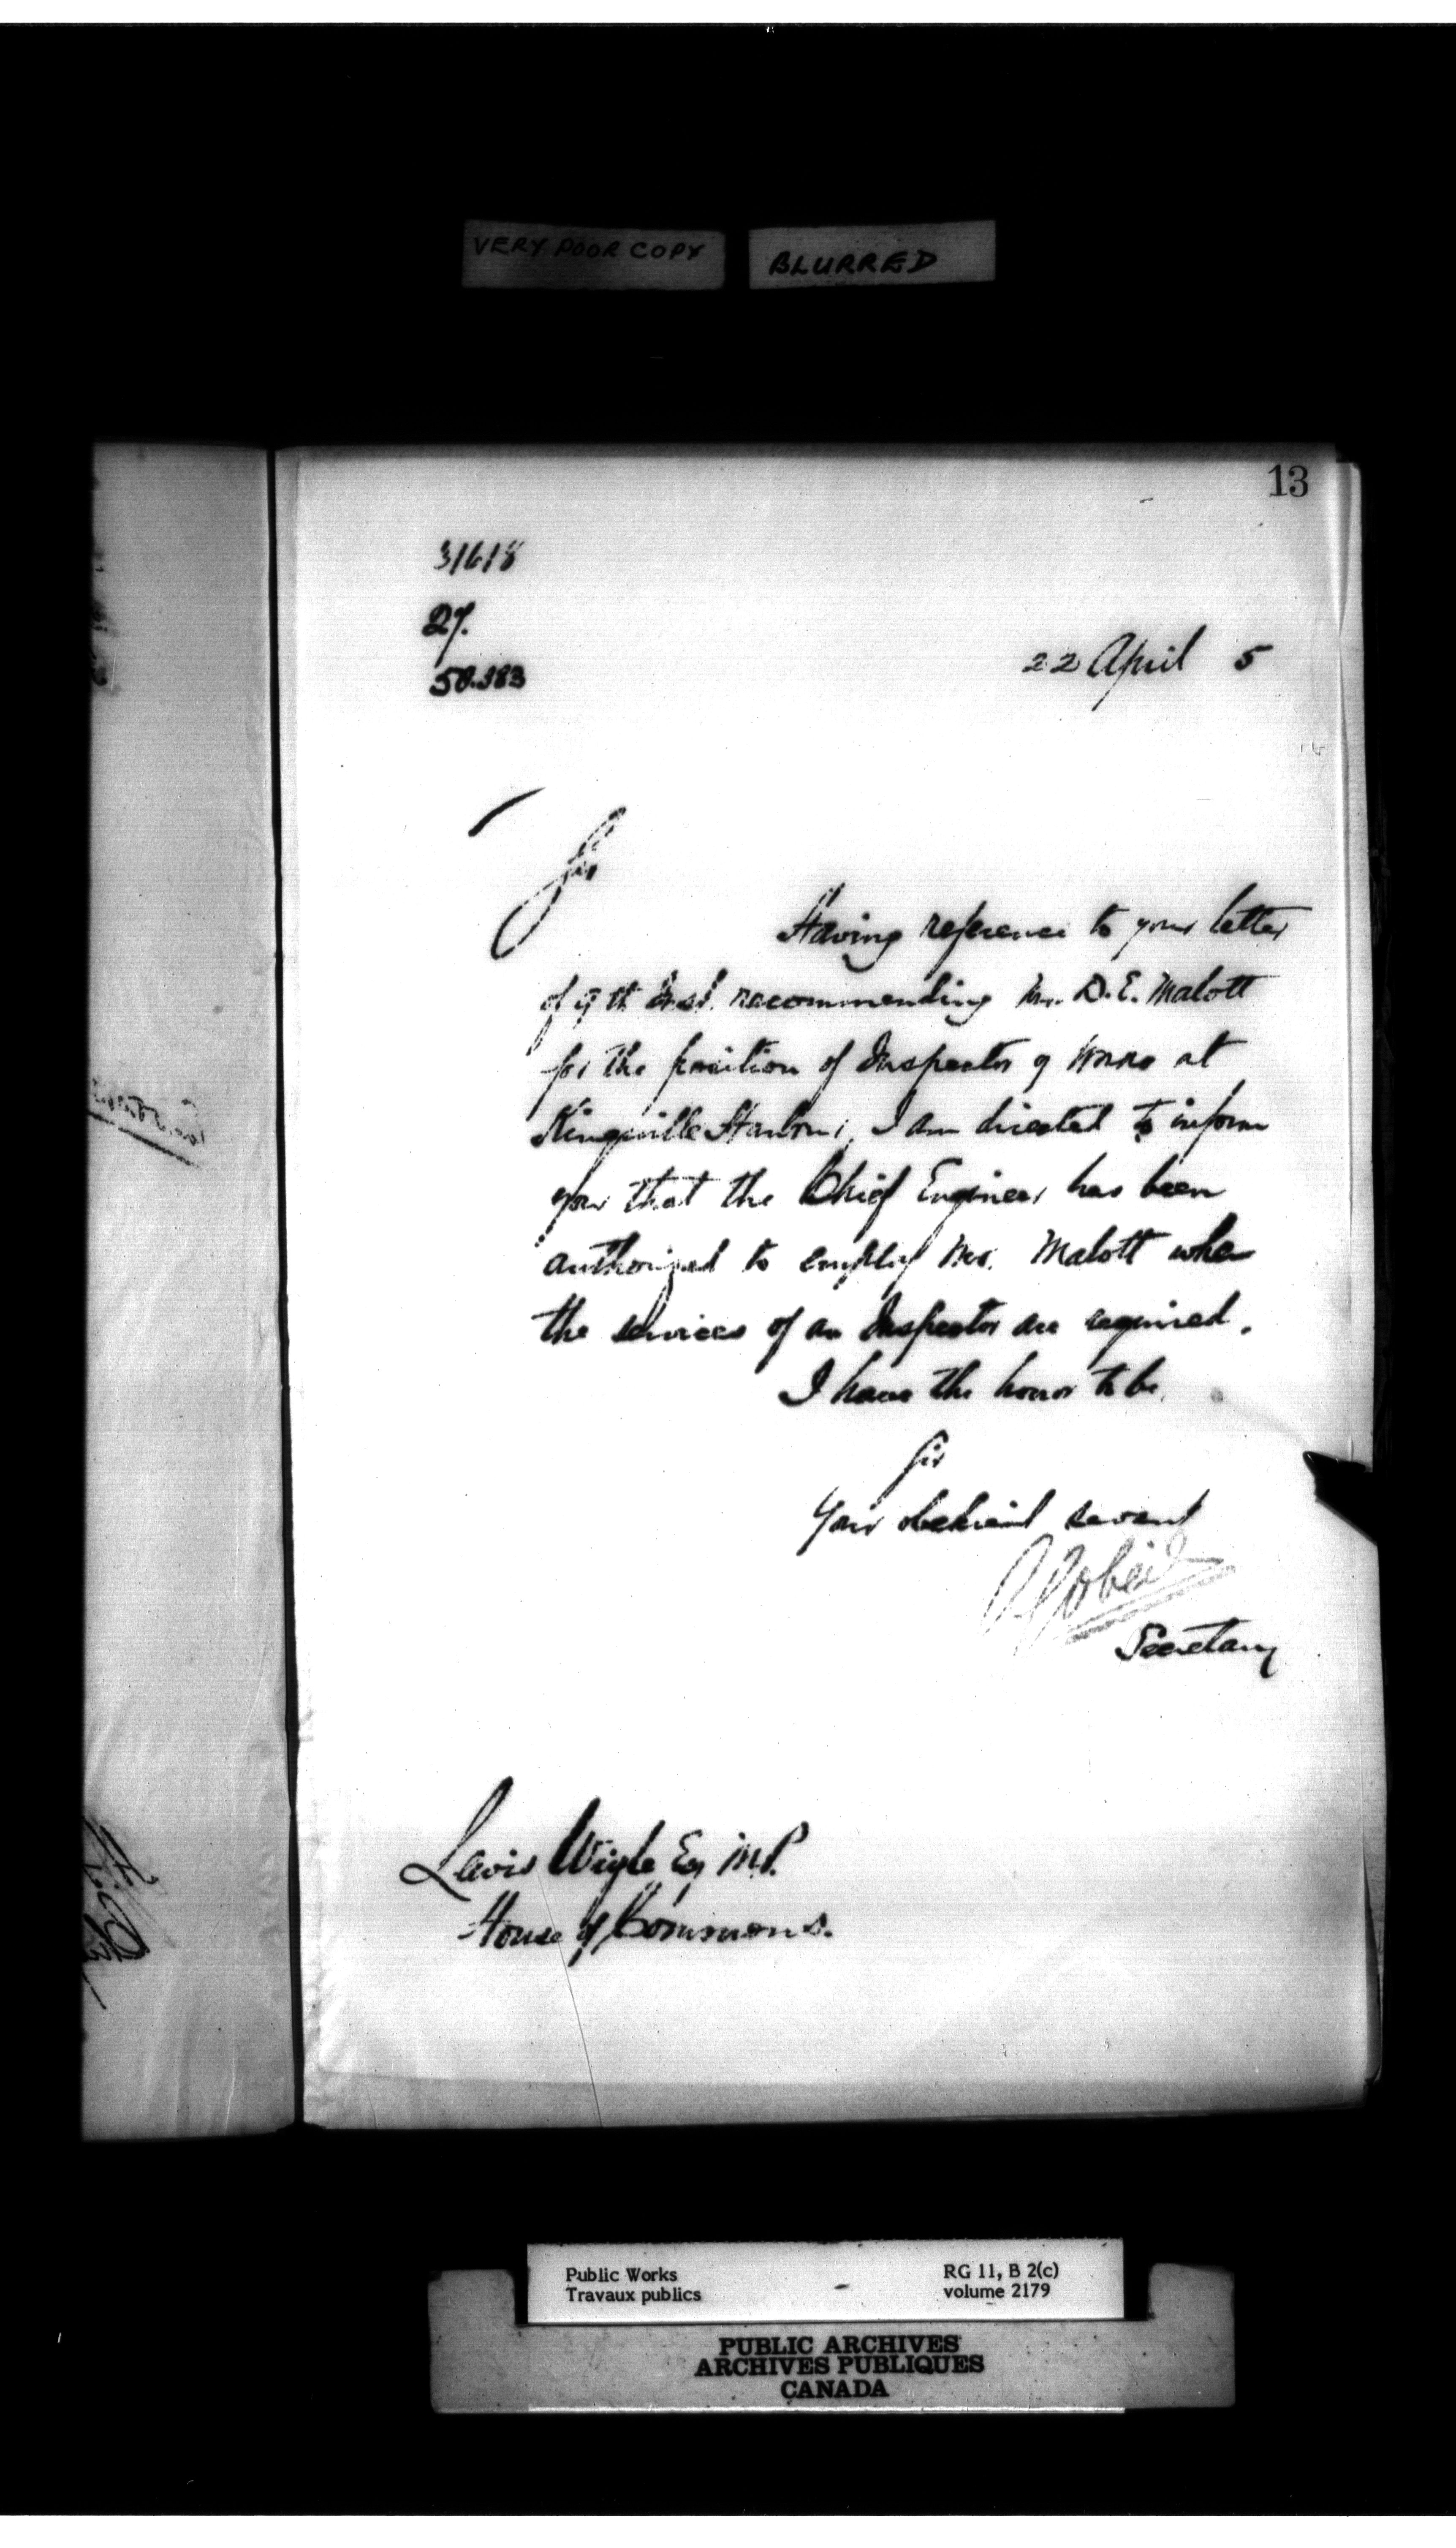 VERY POOR COPY BLURRED
13
31618
27.
22 April 5
50.383
Sir
Having reference to your letter
of 9th Inst. recommending Mr. D. E. Malott
for the position of Inspector of Works at
Kingsville Harbour, I am directed to inform
you that the Chief Engineer has been
authorized to employ Mr. Malott when
the services of an Inspector are required.
I have the honor to be,
Sir
Your obedient servant
Secretary
Lewis Wigle Esq M.P.
House of Commons.
Public Works RG 11, B 2(c)
Travaux publics volume 2179
PUBLIC ARCHIVES
ARCHIVES PUBLIQUES
CANADA